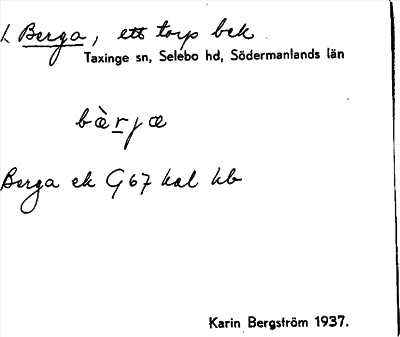 L Berga, ett torp bek.
Taxinge sn, Selebo hd, Södermanlands län
bæ̀rjæ
Berga ek G 67 kal hb
Karin Bergström 1937.